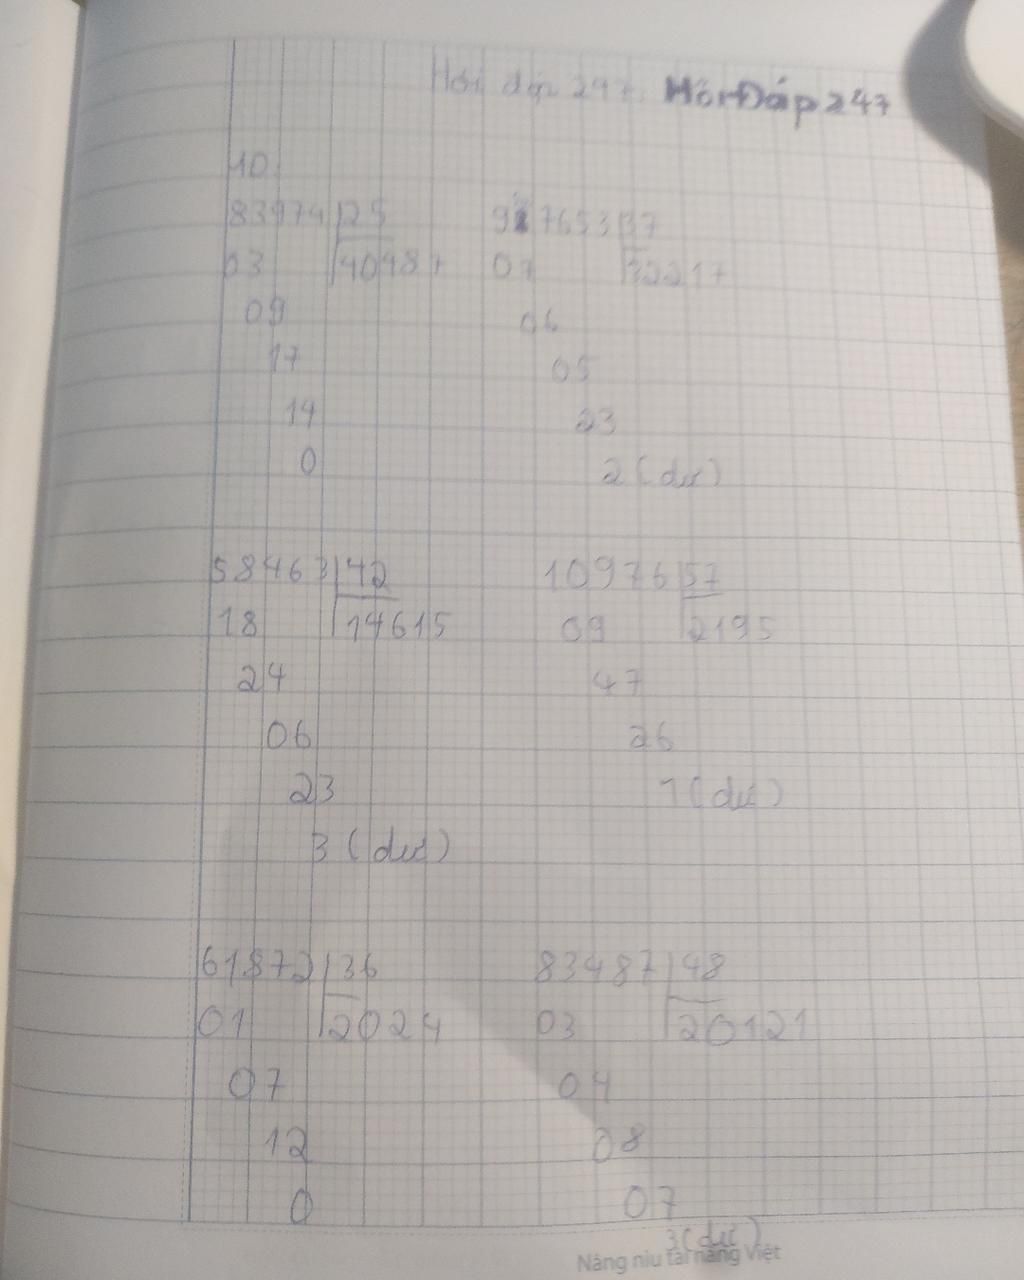 Hỏi đáp 247. Hỏi Đáp 247
10.
83974 25 97653 37
03 40487 07 32217
09 06
17 05
14 23
0 2 (dư)
58463 42 10976 57
18 14615 09 2195
24 47
06 26
23 1 (dư)
3 (dư)
61872 36 83487 48
01 2024 03 20121
07 04
12 08
0 07
3 (dư)
Nâng niu tài năng Việt